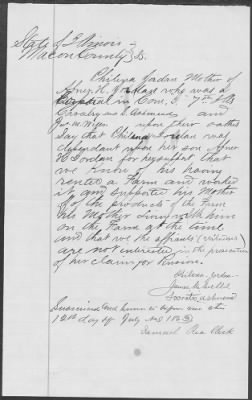 State of Illinois
Macon County } SS.
Philena Jordan Mother of
Abner H. Jordan who was a
Corporal in Com. I. 7th Ills
and
upon their oaths
Say that Philena Jordan was
dependant upon her son Abner
H Jordan for her support that
we know of his having
rented a Farm and worked
it and supported his Mother
of the products of the Farm
his Mother living with him
on the Farm at the time
and that we the affiants (witnesses)
are not interested in the prosecution
of her claim for Pension.
Philena Jordan
James M
Socrates
Subscribed and sworn to before me this
12th day of July A.D.
Samuel Rea Clerk